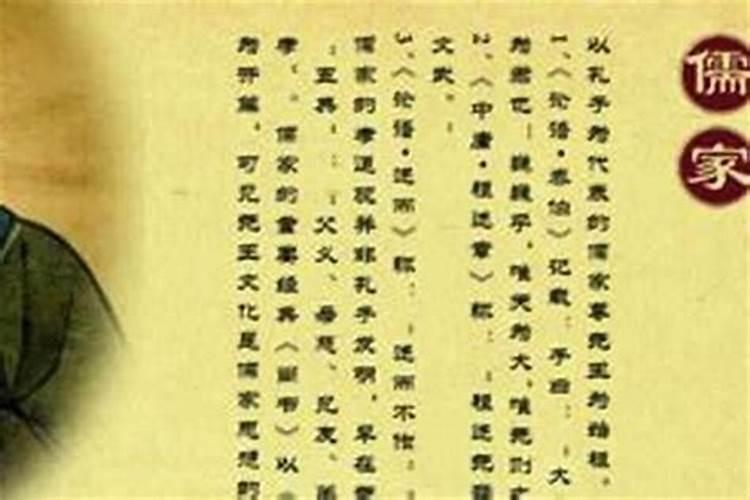 儒家
以孔子为代表的儒家尊尧王为始祖。
1、《论语·泰伯》记载:子曰:“大
为君也!巍巍乎,唯天为大,唯尧则
2、《中庸·祖述章》称:“祖述尧
文武。”
3、《论语·述而》称:“述而不作,
儒家的孝道观并非孔子发明,早在
“五典”:“父义、母慈、兄友、
孝”。儒家的重要经典《尚书》以
为开篇,可见尧王文化是儒家思想的